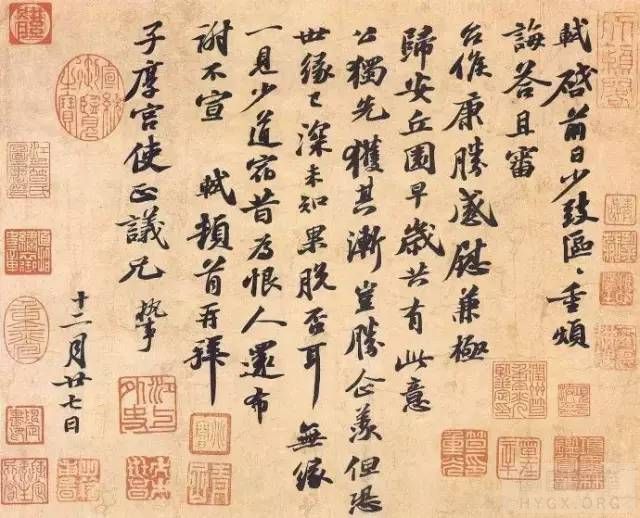 軾啓前日少致區〻重煩
誨荅且審
台侯康勝感慰兼極
歸安丘園早歲共有此意
公獨先獲其漸豈勝企羨但恐
世緣已深未知果脫否耳無緣
一見少道宿昔為恨人還布
謝不宣 軾頓首再拜
子厚宮使正議兄執事
十二月廿七日
江上外史
HYGX.ORG